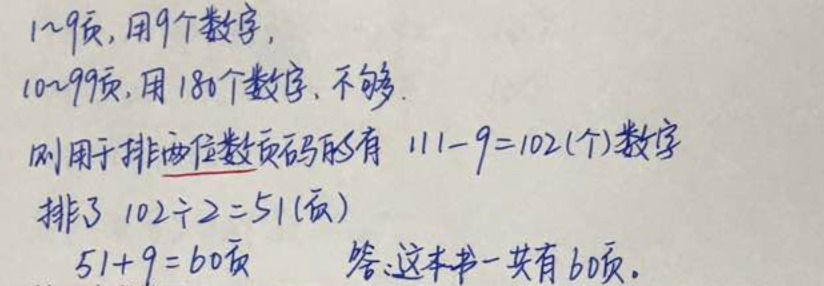 1~9页,用9个数字,
10~99页,用180个数字、不够.
则用于排两位数页码的有 111-9=102(个)数字
排了 102÷2=51(页)
51+9=60页 答:这本书一共有60页。